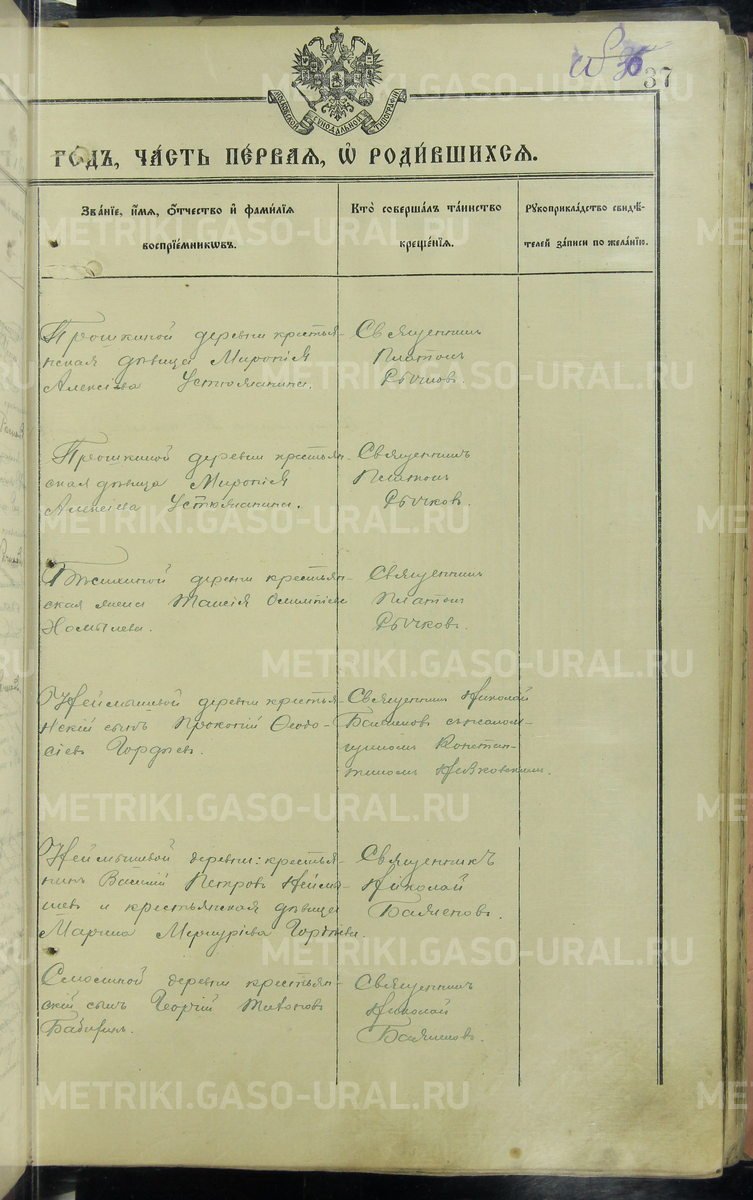 37
МОСКОВСКОЙ СѴНОДАЛЬНОЙ ТИПОГРАФІИ
ГОДЪ, ЧА́СТЬ ПЕ́РВАЯ, Ѡ҆ РОДИ́ВШИХСЯ.
Зва́нїе, и҆́мя, ѻ҆́тчество и҆ фами́лїя
воспрїе́мникѡвъ.
Кто̀ соверша́лъ та́инство
креще́нїя.
Рꙋкоприкла́дство свидѣ́-
телей за́писи по жела́нїю.
деревни крестья-
нская дѣвица Миропія
Алексѣева Устюжанина.
Священникъ
Платонъ
Рычковъ.
деревни крестьян-
ская дѣвица Миропія
Алексѣева Устюжанина.
Священникъ
Платонъ
Рычковъ.
деревни крестьян-
ская жена Таисія
Священникъ
Платонъ
Рычковъ.
Неймышевой деревни крестья-
нскій сынъ Прокопій Ѳеодо-
сіевъ Гордѣевъ.
Священникъ Николай
съ псалом-
щикомъ Констан-
тиномъ
Неймышевой деревни: крестья-
нинъ Василій Петровъ Неймы-
шевъ и крестьянская дѣвица
Марина Меркуріева
Священникъ
Николай
деревни крестьян-
скій сынъ Георгій
Священникъ
Николай
METRIKI.GASO-URAL.RU